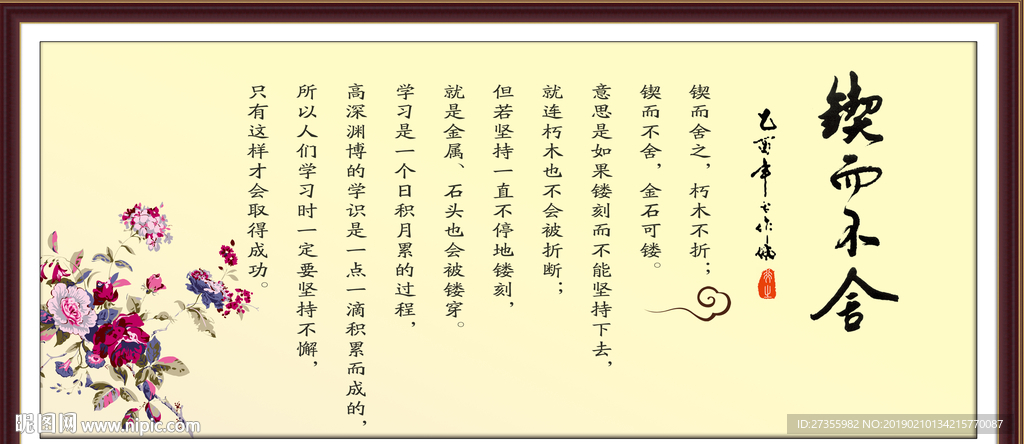 锲而不舍
锲而舍之，朽木不折；
锲而不舍，金石可镂。
意思是如果镂刻而不能坚持下去，
就连朽木也不会被折断；
但若坚持一直不停地镂刻，
就是金属、石头也会被镂穿。
学习是一个日积月累的过程，
高深渊博的学识是一点一滴积累而成的，
所以人们学习时一定要坚持不懈，
只有这样才会取得成功。
昵图网 www.nipic.com
ID:27355982 NO:20190210134215770087